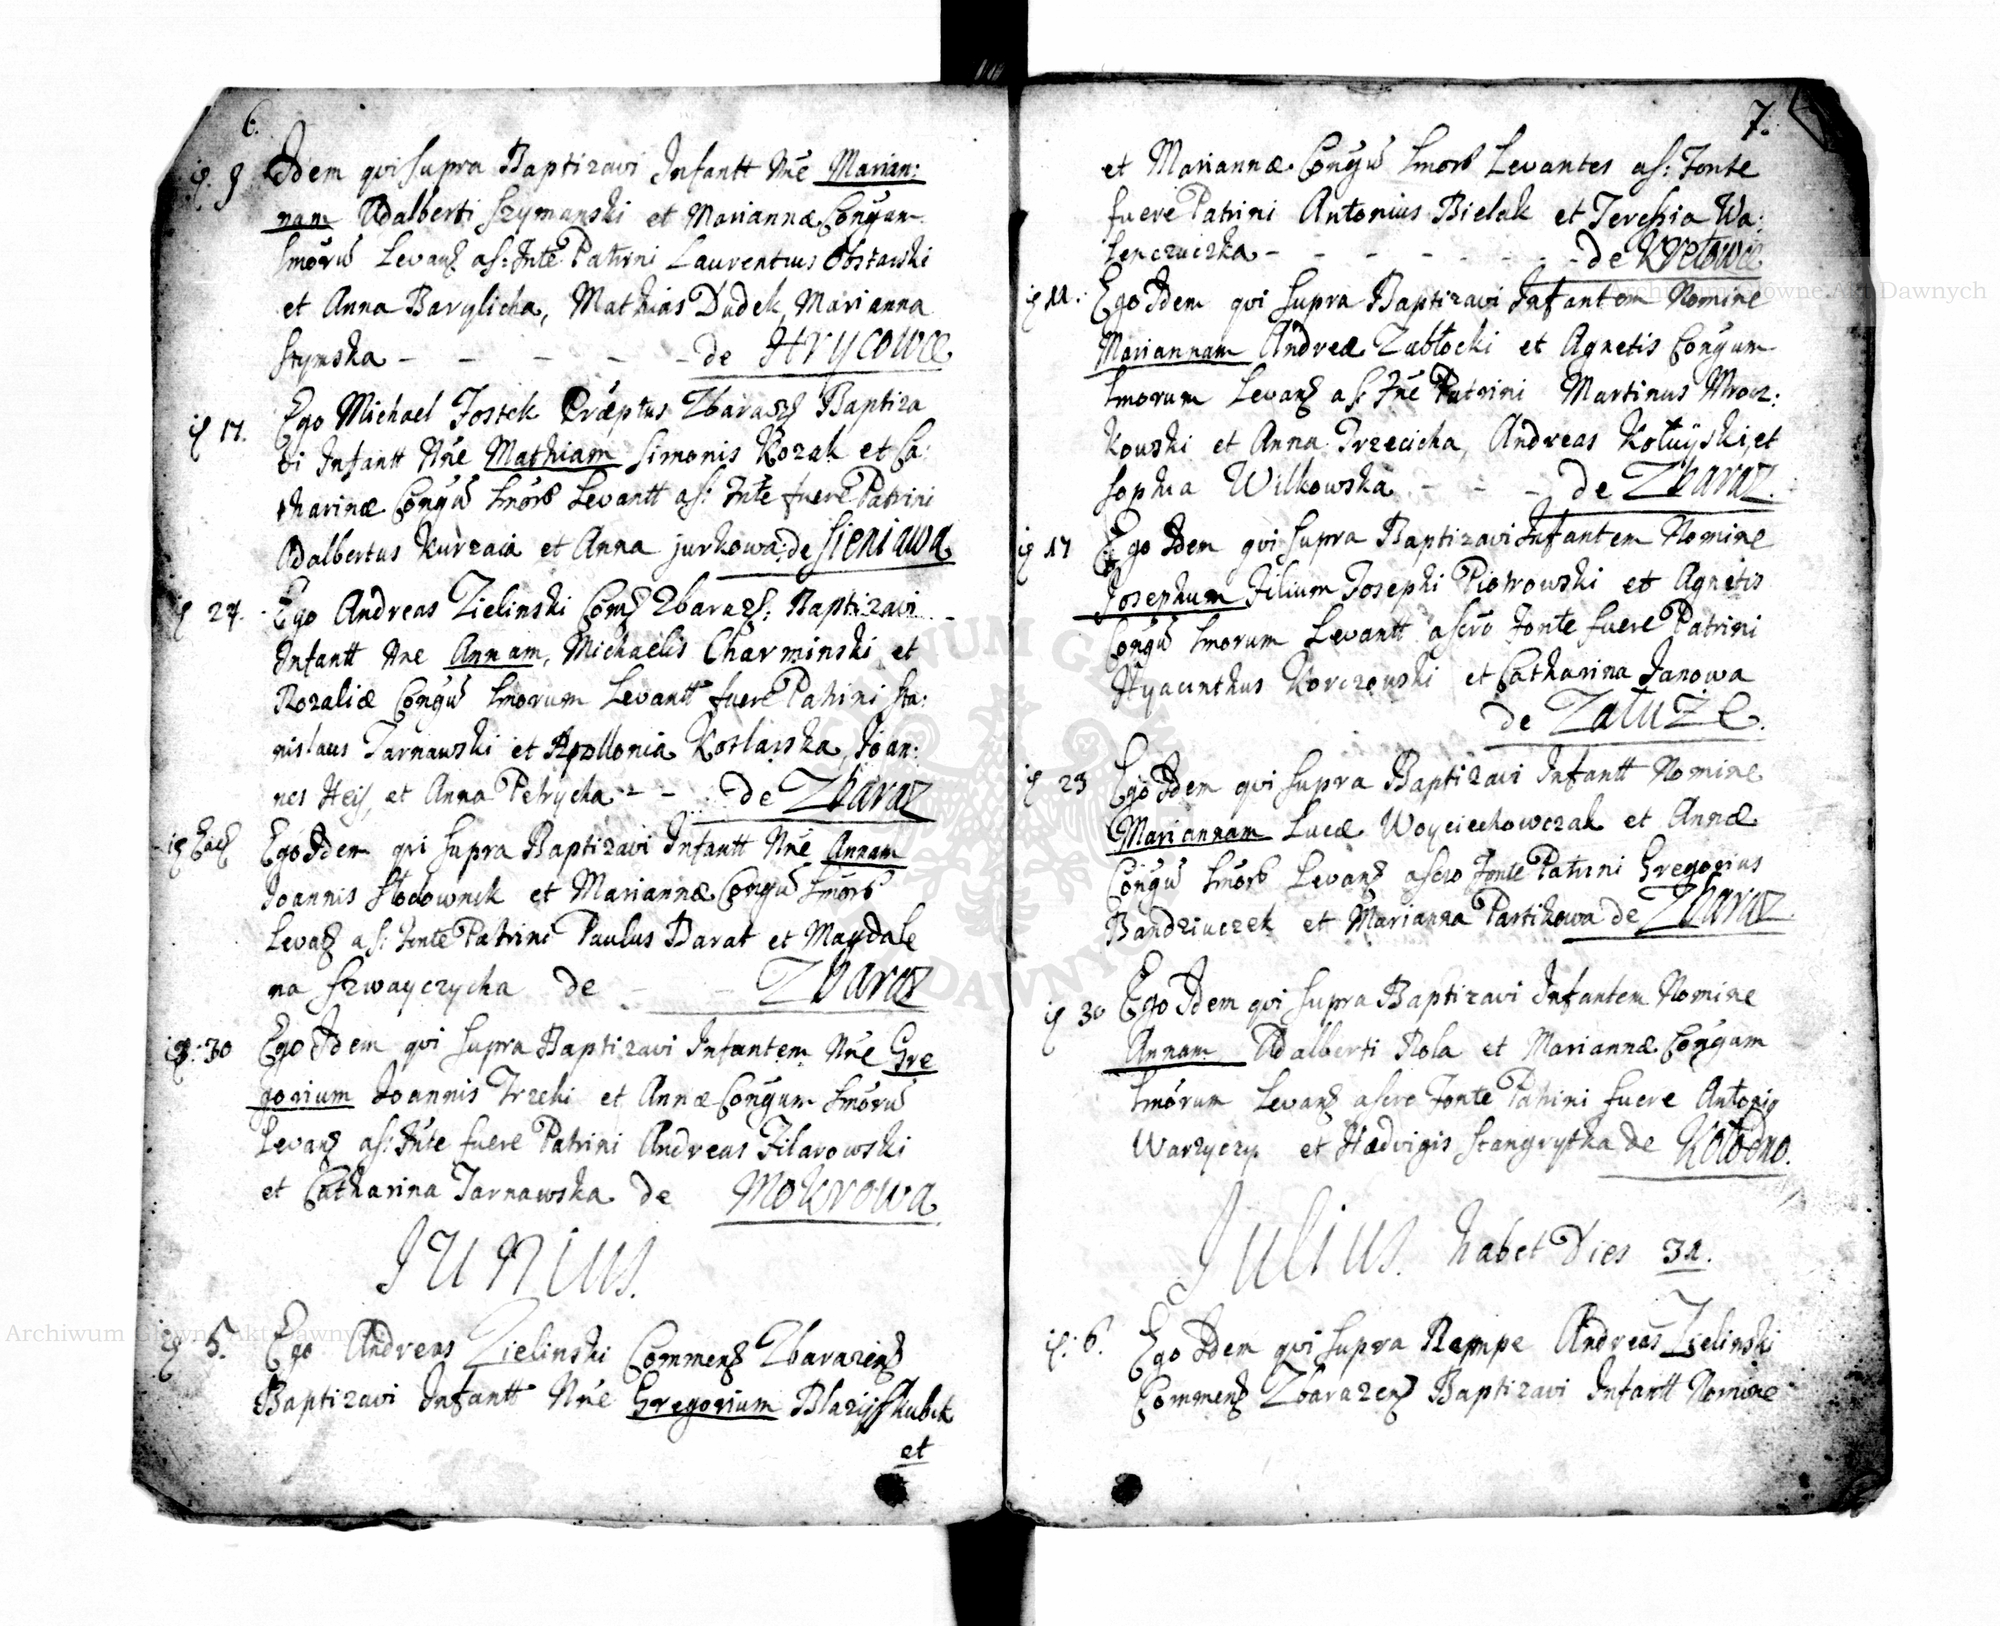 6.
9 Idem qui supra Baptizavi Infantt Nne Marian:
nam Adalberti Szymanski et Mariannæ Conyum
Lmorū Levanz as: Fnte Patrini Laurentius Obstarski
et Anna Barylicha, Mathias Dudek, Marianna
Szymska - - - - - de Hrycowce
17. Ego Michael Fostek Præptus Zbaraz Baptiza
vi Infantt Nne Mathiam Simonis Kozak et Ca:
tharinæ Lmorū Levantt as: Fnte fuere Patrini
Adalbertus Kurzaia et Anna jurkowa: de Sieniawa
24. Ego Andreas Zielinski Comz Zbaraz: Baptizavi
Infantt Nne Annam, Michaelis Charminski et
Rozaliæ Lmorum Levantt fuere Patrini Sta:
nislaus Tarnawski et Apollonia Kotlarska, Joan:
nes Heis, et Anna Petrycha - - de Zbaraz
Ego Idem qui supra Baptizavi Infantt Nne Annam
Joannis Slodownik et Mariannæ
as: Fonte Patrini Paulus Barat et Magdale
na Szwayczycha de - - Zbaraz
30 Ego Idem qui supra Baptizavi Infantem Nne Gre
gorium Joannis Trzeki et Annæ Conyum Lmorū
Levanz as: Fnte fuere Patrini Andreas Filarowski
et Catharina Tarnawska de Mokrowa
Junius.
5. Ego Andreas Zielinski Commenz Zbarazenz
Baptizavi Infantt Nne Gregorium Blazij Skubek
et
7.
et Mariannæ Levantes as: Fonte
fuere Patrini Antonius Bielak et Teressia Wa:
lenczuczka - - - - - - de Kretowce
11. Ego Idem qui supra Baptizavi Infantem Nomine
Mariannam Andreæ Zabłocki et Agnetis Conyum
Lmorum Levanz as: Fne Patrini Martinus Mrocz:
kowski et Anna Trzecicha, Andreas et
Sophia Wilkowska - - - de Zbaraz.
17 Ego Idem qui supra Baptizavi Infantem Nomine
Josephum Filium Josephi Piotrowski et Agnetis
Lmorum Levantt Fonte fuere Patrini
Hyacinthus Korczowski et Catharina Janowa
de Załuże.
23 Ego Idem qui supra Baptizavi Infantt Nomine
Mariannam Lucæ Woyciechowczak et Annæ
Levanz Fonte Patrini Gregorius
Bandziuczek et Marianna Partikowa de Zbaraz
30 Ego Idem qui supra Baptizavi Infantem Nomine
Annam Adalberti Rola et Mariannæ Conyum
Lmorum Levanz Fonte Patrini fuere Antonig
Warzyczy et Hædvigis Stangrytka de Kołodno.
Julius. habet Dies 31.
6. Ego Idem qui supra Rempe Andreas Zielinski
Commenz Zbarazenz Baptizavi Infantt Nomine
Archiwum Główne Akt Dawnych
Archiwum Główne Akt Dawnych